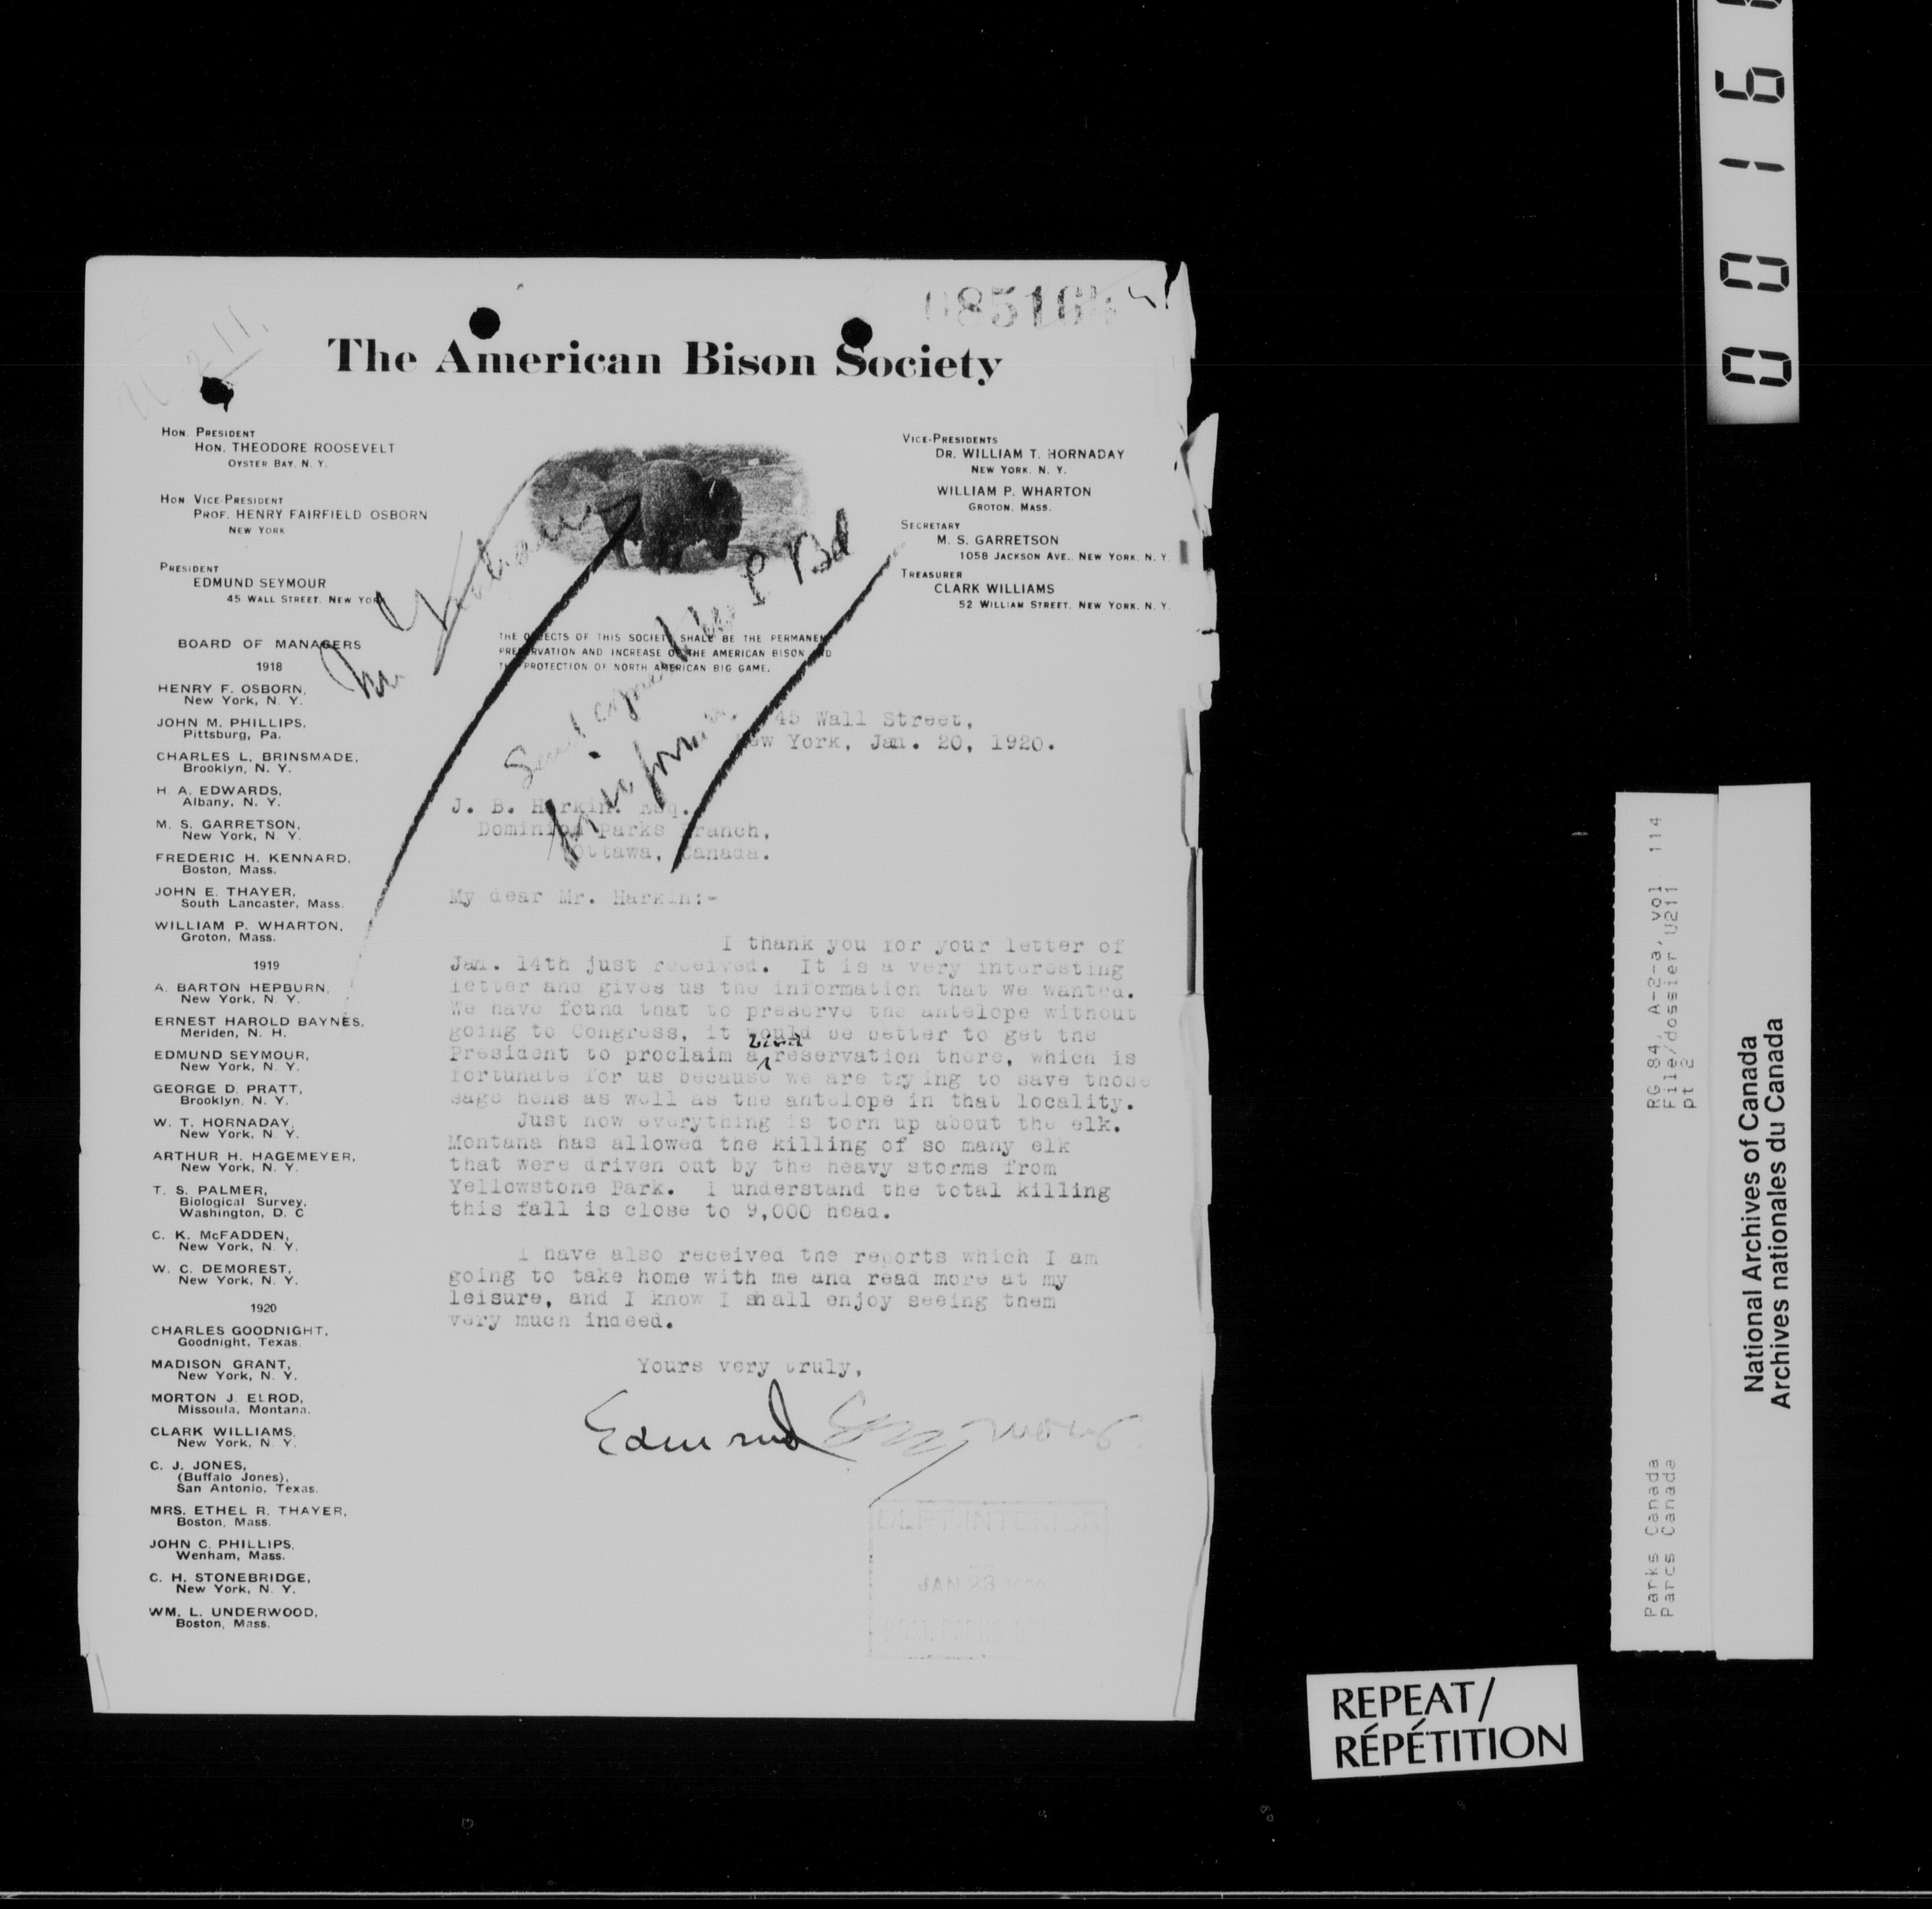 The American Bison Society
HON. PRESIDENT
HON. THEODORE ROOSEVELT
OYSTER BAY, N. Y.
HON VICE-PRESIDENT
PROF. HENRY FAIRFIELD OSBORN
NEW YORK
PRESIDENT
EDMUND SEYMOUR
45 WALL STREET, NEW YORK
VICE-PRESIDENTS
DR. WILLIAM T. HORNADAY
NEW YORK, N. Y.
WILLIAM P. WHARTON
GROTON, MASS.
SECRETARY
M. S. GARRETSON
1058 JACKSON AVE., NEW YORK, N. Y.
TREASURER
CLARK WILLIAMS
52 WILLIAM STREET, NEW YORK, N. Y.
THE OBJECTS OF THIS SOCIETY SHALL BE THE PERMANENT
PRESERVATION AND INCREASE OF THE AMERICAN BISON AND
THE PROTECTION OF NORTH AMERICAN BIG GAME.
BOARD OF MANAGERS
1918
HENRY F. OSBORN,
New York, N. Y.
JOHN M. PHILLIPS,
Pittsburg, Pa.
CHARLES L. BRINSMADE,
Brooklyn, N. Y.
H. A. EDWARDS,
Albany, N. Y.
M. S. GARRETSON,
New York, N. Y.
FREDERIC H. KENNARD,
Boston, Mass.
JOHN E. THAYER,
South Lancaster, Mass.
WILLIAM P. WHARTON,
Groton, Mass.
1919
A. BARTON HEPBURN,
New York, N. Y.
ERNEST HAROLD BAYNES,
Meriden, N. H.
EDMUND SEYMOUR,
New York, N. Y.
GEORGE D. PRATT,
Brooklyn, N. Y.
W. T. HORNADAY,
New York, N. Y.
ARTHUR H. HAGEMEYER,
New York, N. Y.
T. S. PALMER,
Biological Survey,
Washington, D. C.
C. K. McFADDEN,
New York, N. Y.
W. C. DEMOREST,
New York, N. Y.
1920
CHARLES GOODNIGHT,
Goodnight, Texas.
MADISON GRANT,
New York, N. Y.
MORTON J. ELROD,
Missoula, Montana.
CLARK WILLIAMS,
New York, N. Y.
C. J. JONES,
(Buffalo Jones),
San Antonio, Texas.
MRS. ETHEL R. THAYER,
Boston, Mass.
JOHN C. PHILLIPS,
Wenham, Mass.
C. H. STONEBRIDGE,
New York, N. Y.
WM. L. UNDERWOOD,
Boston, Mass.
45 Wall Street,
New York, Jan. 20, 1920.
J. B. Harkin, Esq.
Dominion Parks Branch,
Ottawa, Canada.
My dear Mr. Harkin:-
I thank you for your letter of
Jan. 14th just received. It is a very interesting
letter and gives us the information that we wanted.
We have found that to preserve the antelope without
going to Congress, it would be better to get the
bird
President to proclaim a reservation there, which is
fortunate for us because we are trying to save those
sage hens as well as the antelope in that locality.
Just now everything is torn up about the elk.
Montana has allowed the killing of so many elk
that were driven out by the heavy storms from
Yellowstone Park. I understand the total killing
this fall is close to 9,000 head.
I have also received the reports which I am
going to take home with me and read more at my
leisure, and I know I shall enjoy seeing them
very much indeed.
Yours very truly,
Edmund Seymour
DEPT. INTERIOR
JAN 23 1920
0016
RG 84, A-2-a, vol 114
File/dossier U211
pt 2
Parks Canada
Parcs Canada
National Archives of Canada
Archives nationales du Canada
REPEAT/
RÉPÉTITION